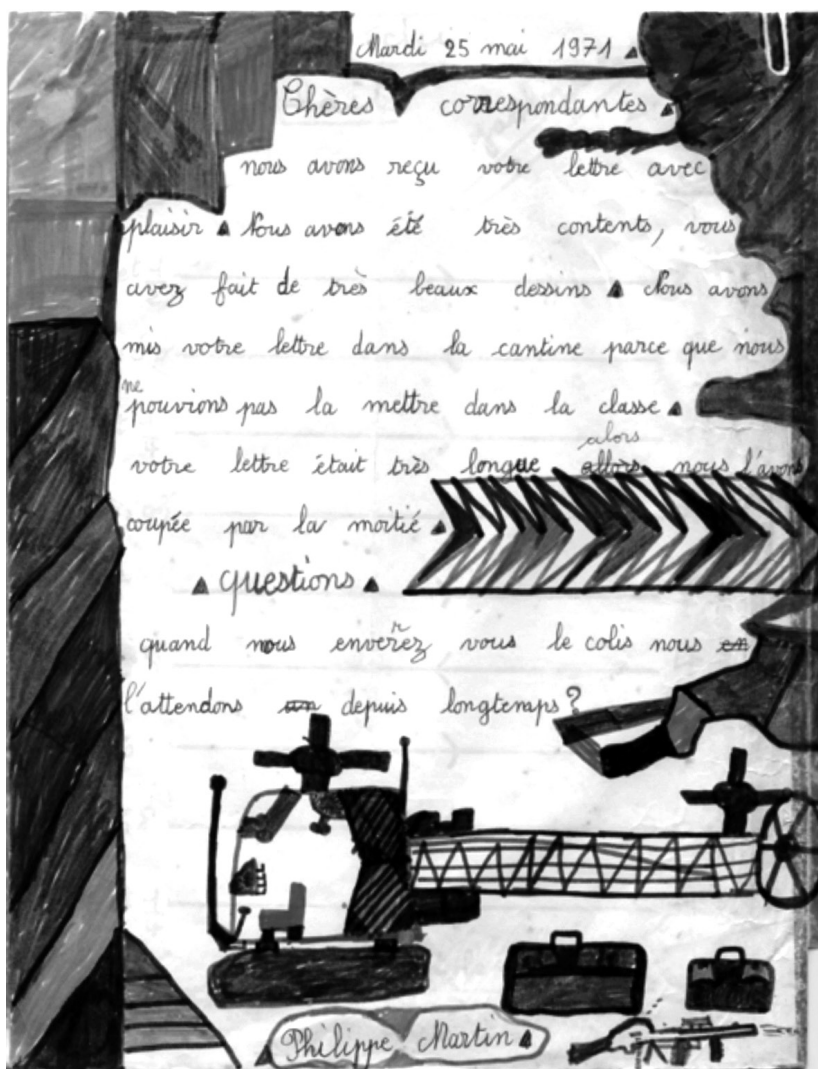 Mardi 25 mai 1971
Chères correspondantes
nous avons reçu votre lettre avec
plaisir Nous avons été très contents, vous
avez fait de très beaux dessins Nous avons
mis votre lettre dans la cantine parce que nous
ne
pouvions pas la mettre dans la classe
alors
votre lettre était très longue allors nous l'avons
coupée par la moitié
questions
quand nous enverez vous le colis nous en
l'attendons un depuis longtemps?
Philippe Martin